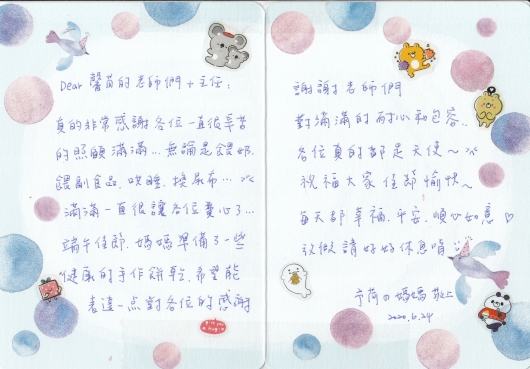 Dear 馨苗的老師們+主任:
真的非常感謝各位一直很辛苦
的照顧滿滿...無論是餵奶.
餵副食品.哄睡.換尿布...
滿滿一直很讓各位費心了...
端午佳節.媽媽準備了一些
健康的手作餅乾.希望能
表達一點對各位的感謝
謝謝老師們
對滿滿的耐心和包容..
各位真的都是天使~
祝福大家佳節愉快~
每天都幸福.平安.順心如意♡
放假請好好休息唷
の媽媽 敬上
2020.6.24